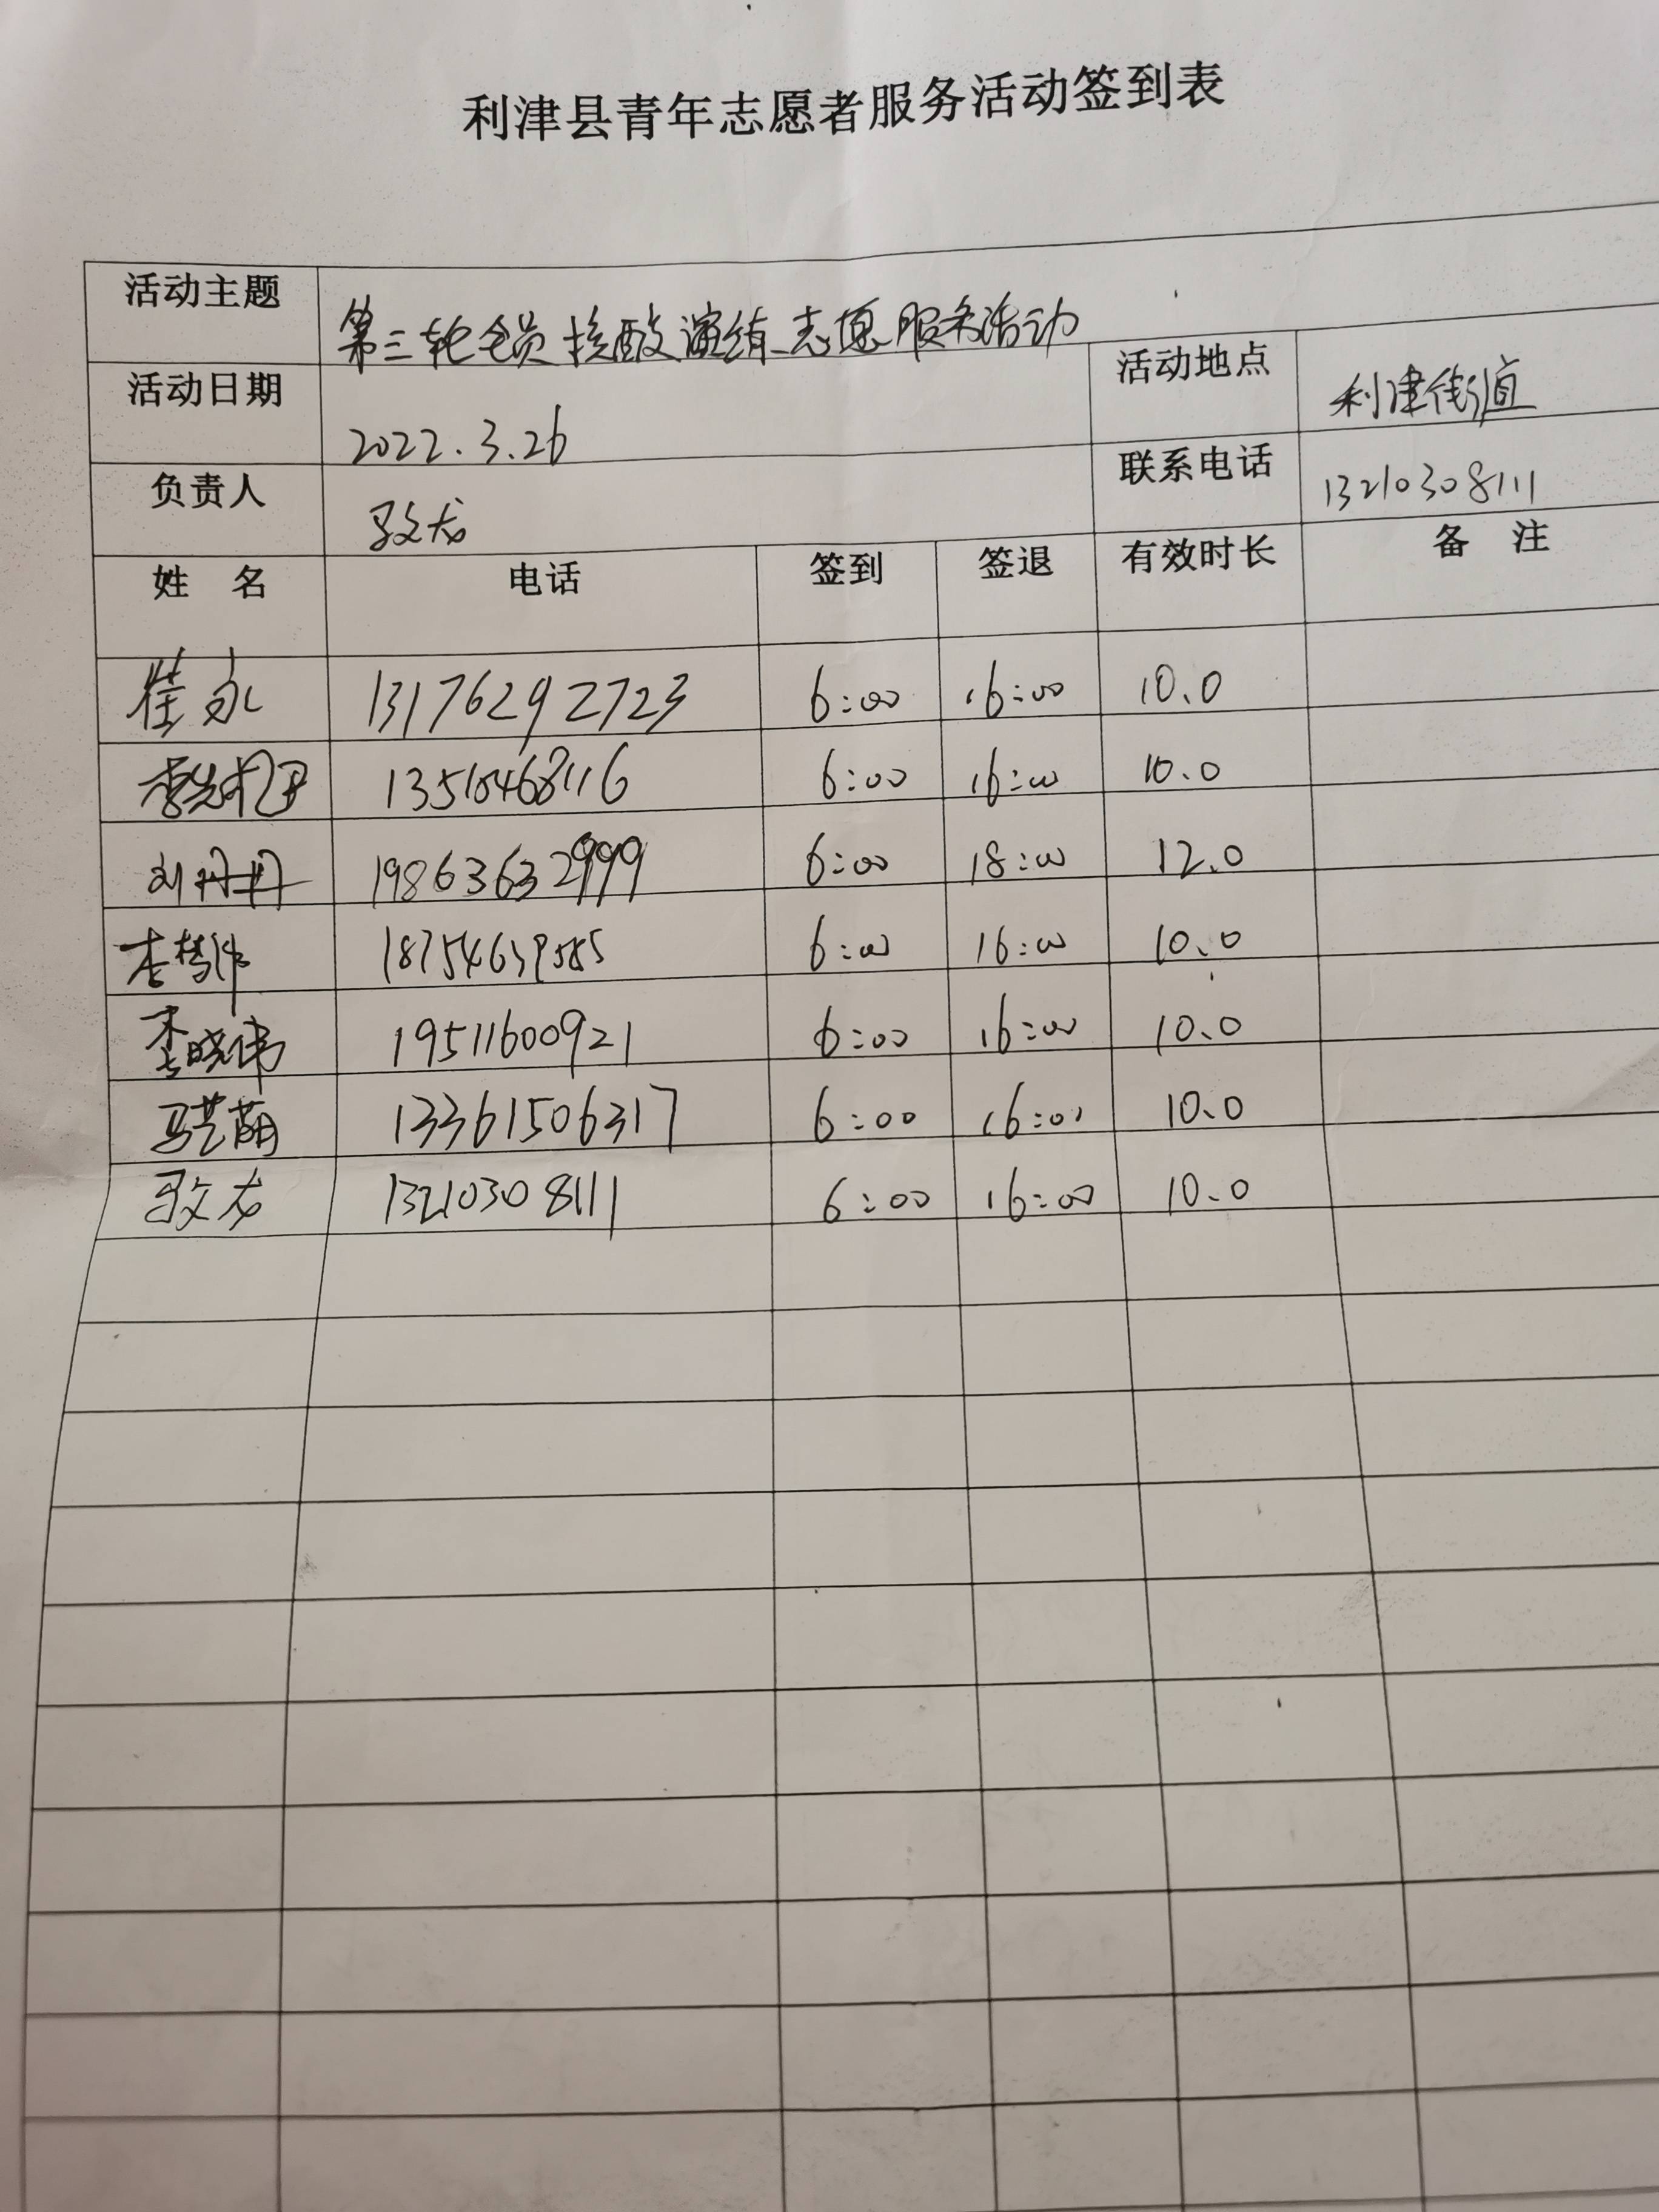 利津县青年志愿者服务活动签到表
活动主题 第三轮全员核酸演练志愿服务活动
活动日期 2022.3.26 活动地点 利津街道
负责人 文龙 联系电话 13210308111
姓 名 电话 签到 签退 有效时长 备 注
崔永 13176292723 6:00 16:00 10.0
李 13510468116 6:00 16:00 10.0
刘丹丹 19863632999 6:00 18:00 12.0
李梦伟 6:00 16:00 10.0
李晓伟 19511600921 6:00 16:00 10.0
马艺萌 13361506317 6:00 16:00 10.0
文龙 13210308111 6:00 16:00 10.0